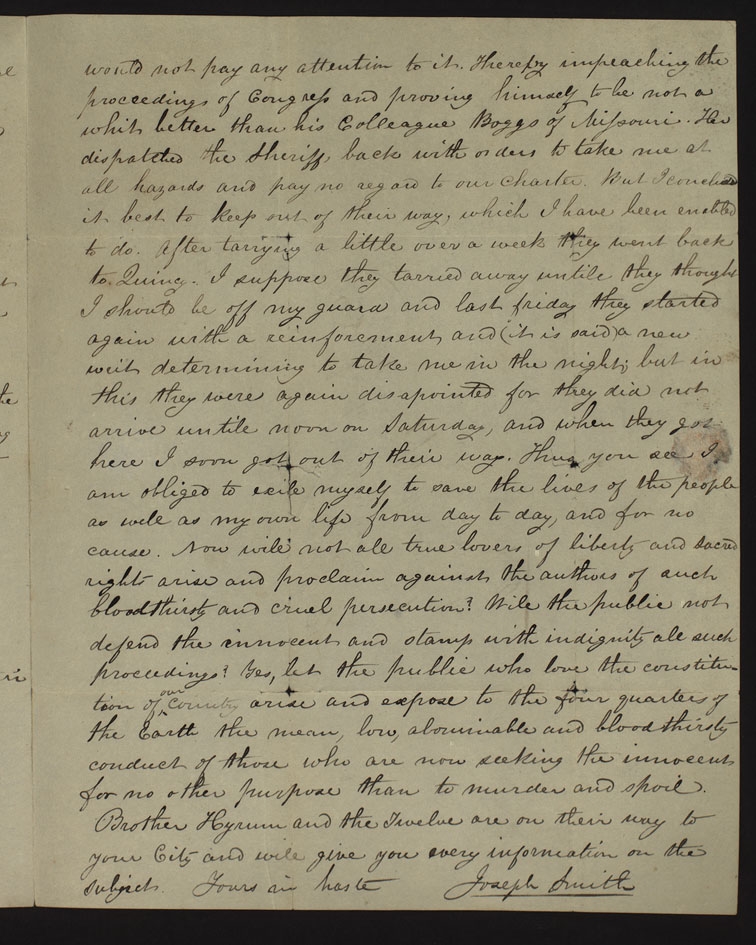 would not pay any attention to it. Thereby impeaching the
proceedings of Congress and proving himself to be not a
whit better than his Colleague Boggs of Missouri. He
dispatched the Sheriff back with orders to take me at
all hazards and pay no regard to our Charter. But I conclud
it best to keep out of their way, which I have been enabled
to do. After tarrying a little over a week they went back
to Quincy. I suppose they tarried away untill they thought
I should be off my guard and last friday they started
again with a reinforcement and (it is said) a new
writ determining to take me in the night; but in
this they were again disapointed for they did not
arrive untill noon on Saturday, and when they got
here I soon got out of their way. Thus you see I
am obliged to exile myself to save the lives of the people
as well as my own life from day to day, and for no
cause. Now will not all true lovers of liberty and sacred
right arise and proclaim against the authors of such
bloodthirsty and cruel persecution? Will the public not
defend the innocent and stamp with indignity all such
proceedings? Yes, let the public who love the constitu-
tion of our country arise and expose to the four quarters of
the Earth the mean, low, abominable and bloodthirsty
conduct of those who are now seeking the innocent
for no other purpose than to murder and spoil.
Brother Hyrum and the Twelve are on their way to
your City and will give you every information on the
subject. Yours in haste Joseph Smith